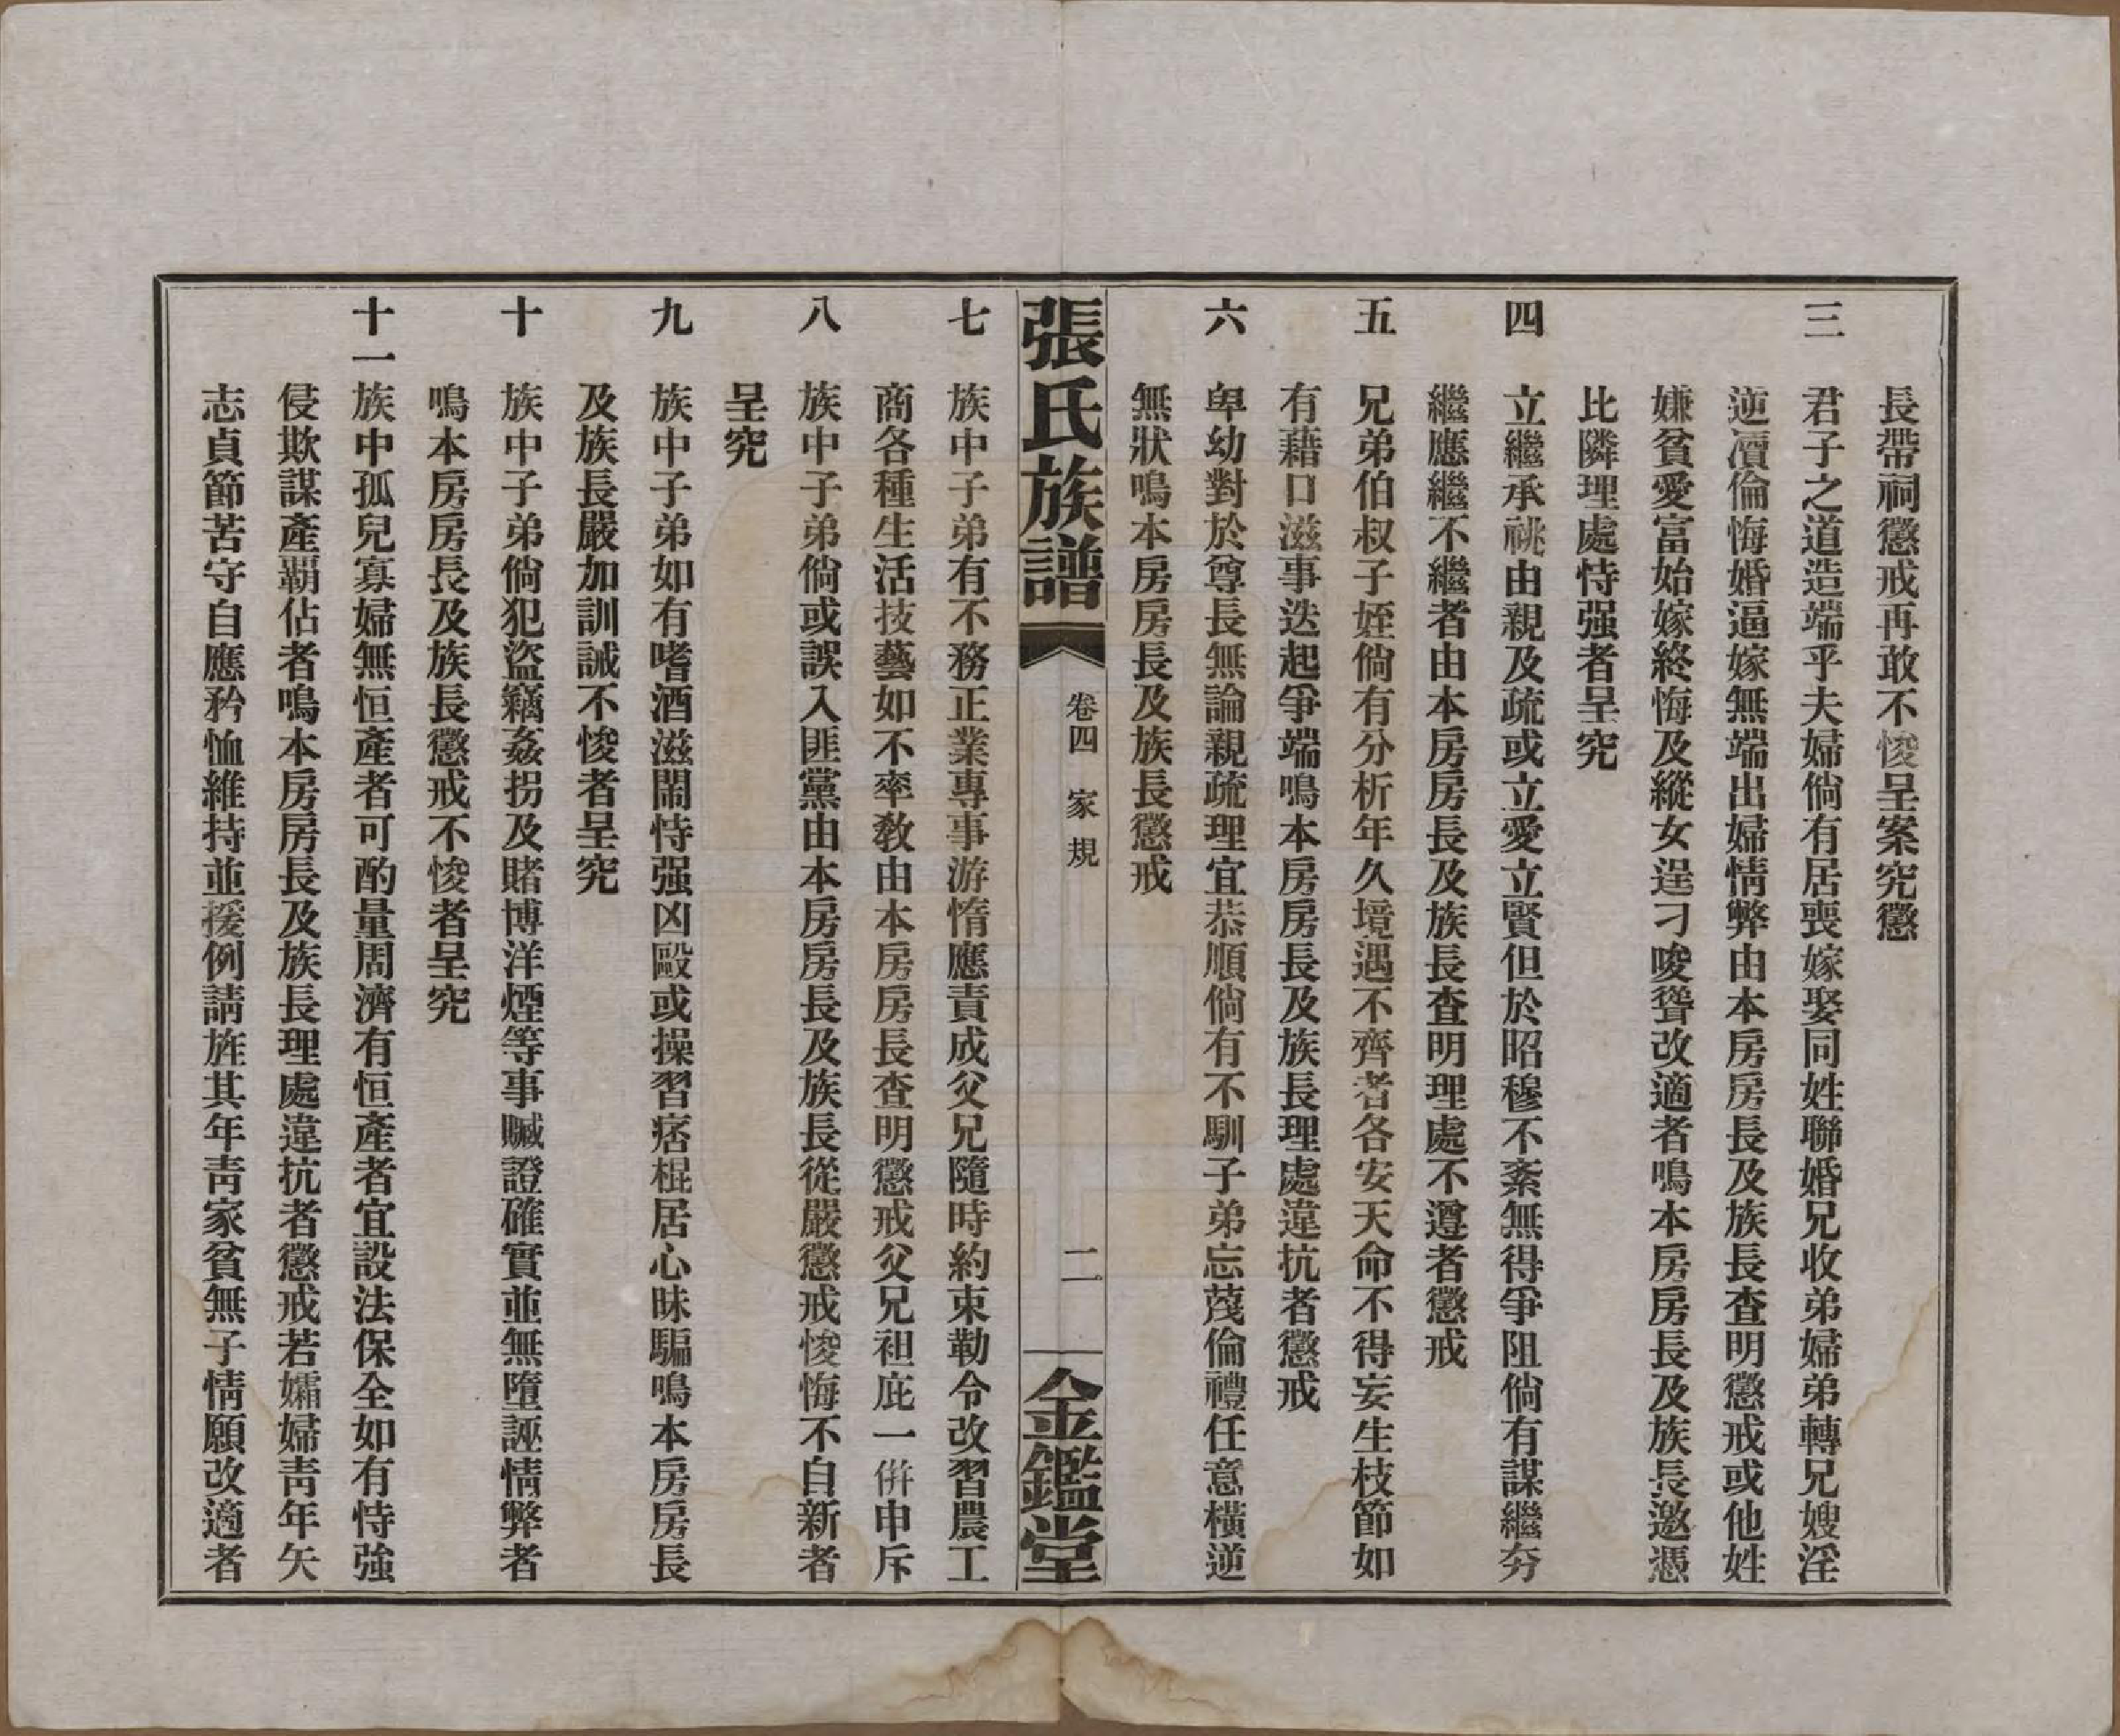 長帶祠懲戒再敢不悛呈案究懲
三　君子之道造端乎夫婦倘有居喪嫁娶同姓聯婚兄收弟婦弟轉兄嫂淫
逆瀆倫悔婚逼嫁無端出婦情弊由本房房長及族長查明懲戒或他姓
嫌貧愛富始嫁終悔及縱女逞刁唆聳改適者鳴本房房長及族長邀憑
比隣理處恃强者呈究
四　立繼承祧由親及疏或立愛立賢但於昭穆不紊無得爭阻倘有謀繼夯
繼應繼不繼者由本房房長及族長查明理處不遵者懲戒
五　兄弟伯叔子姪倘有分析年久境遇不齊者各安天命不得妄生枝節如
有藉口滋事迭起爭端鳴本房房長及族長理處違抗者懲戒
六　卑幼對於尊長無論親疏理宜恭順倘有不馴子弟忘蔑倫禮任意橫逆
無狀鳴本房房長及族長懲戒
張氏族譜　卷四　家規　二　金鑑堂
七　族中子弟有不務正業專事游惰應責成父兄隨時約束勒令改習農工
商各種生活技藝如不率教由本房房長查明懲戒父兄袒庇一併申斥
八　族中子弟倘或誤入匪黨由本房房長及族長從嚴懲戒悛悔不自新者
呈究
九　族中子弟如有嗜酒滋鬧恃强凶毆或操習痞棍居心昧騙鳴本房房長
及族長嚴加訓誡不悛者呈究
十　族中子弟倘犯盜竊姦拐及賭博洋煙等事贓證確實並無墮誣情弊者
鳴本房房長及族長懲戒不悛者呈究
十一　族中孤兒寡婦無恒產者可酌量周濟有恒產者宜設法保全如有恃強
侵欺謀產覇佔者鳴本房房長及族長理處違抗者懲戒若孀婦靑年矢
志貞節苦守自應矜恤維持並援例請旌其年靑家貧無子情願改適者